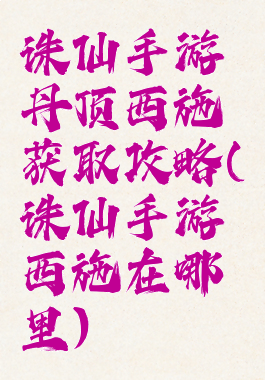 诛仙手游
丹顶西施
获取攻略(
诛仙手游
西施在哪
里)